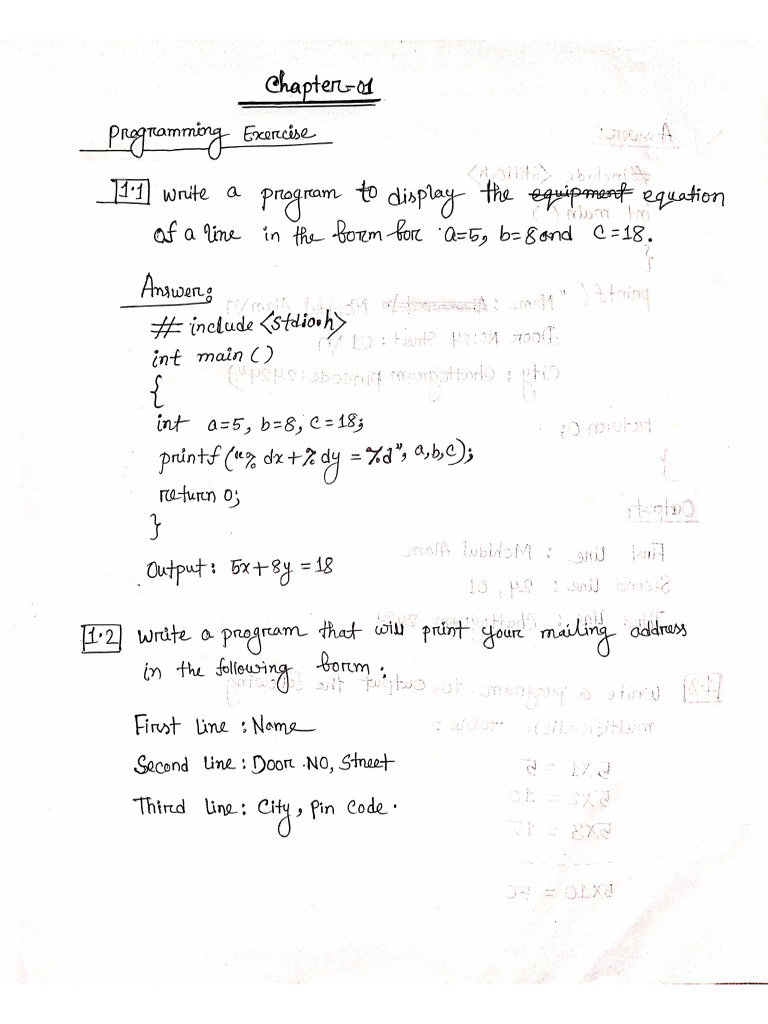 Chapter-01
Programming Exercise
1.1 Write a program to display the equipment equation
of a line in the form for a=5, b=8 and C=18.
Answer:
# include <stdio.h>
int main ()
{
int a=5, b=8, C=18;
printf ("% dx + % dy = %d", a,b,c);
return 0;
}
Output: 5x + 8y = 18
1.2 Write a program that will print your mailing address
in the following form:
First line : Name
Second line : Door NO, Street
Third line : City, Pin code.